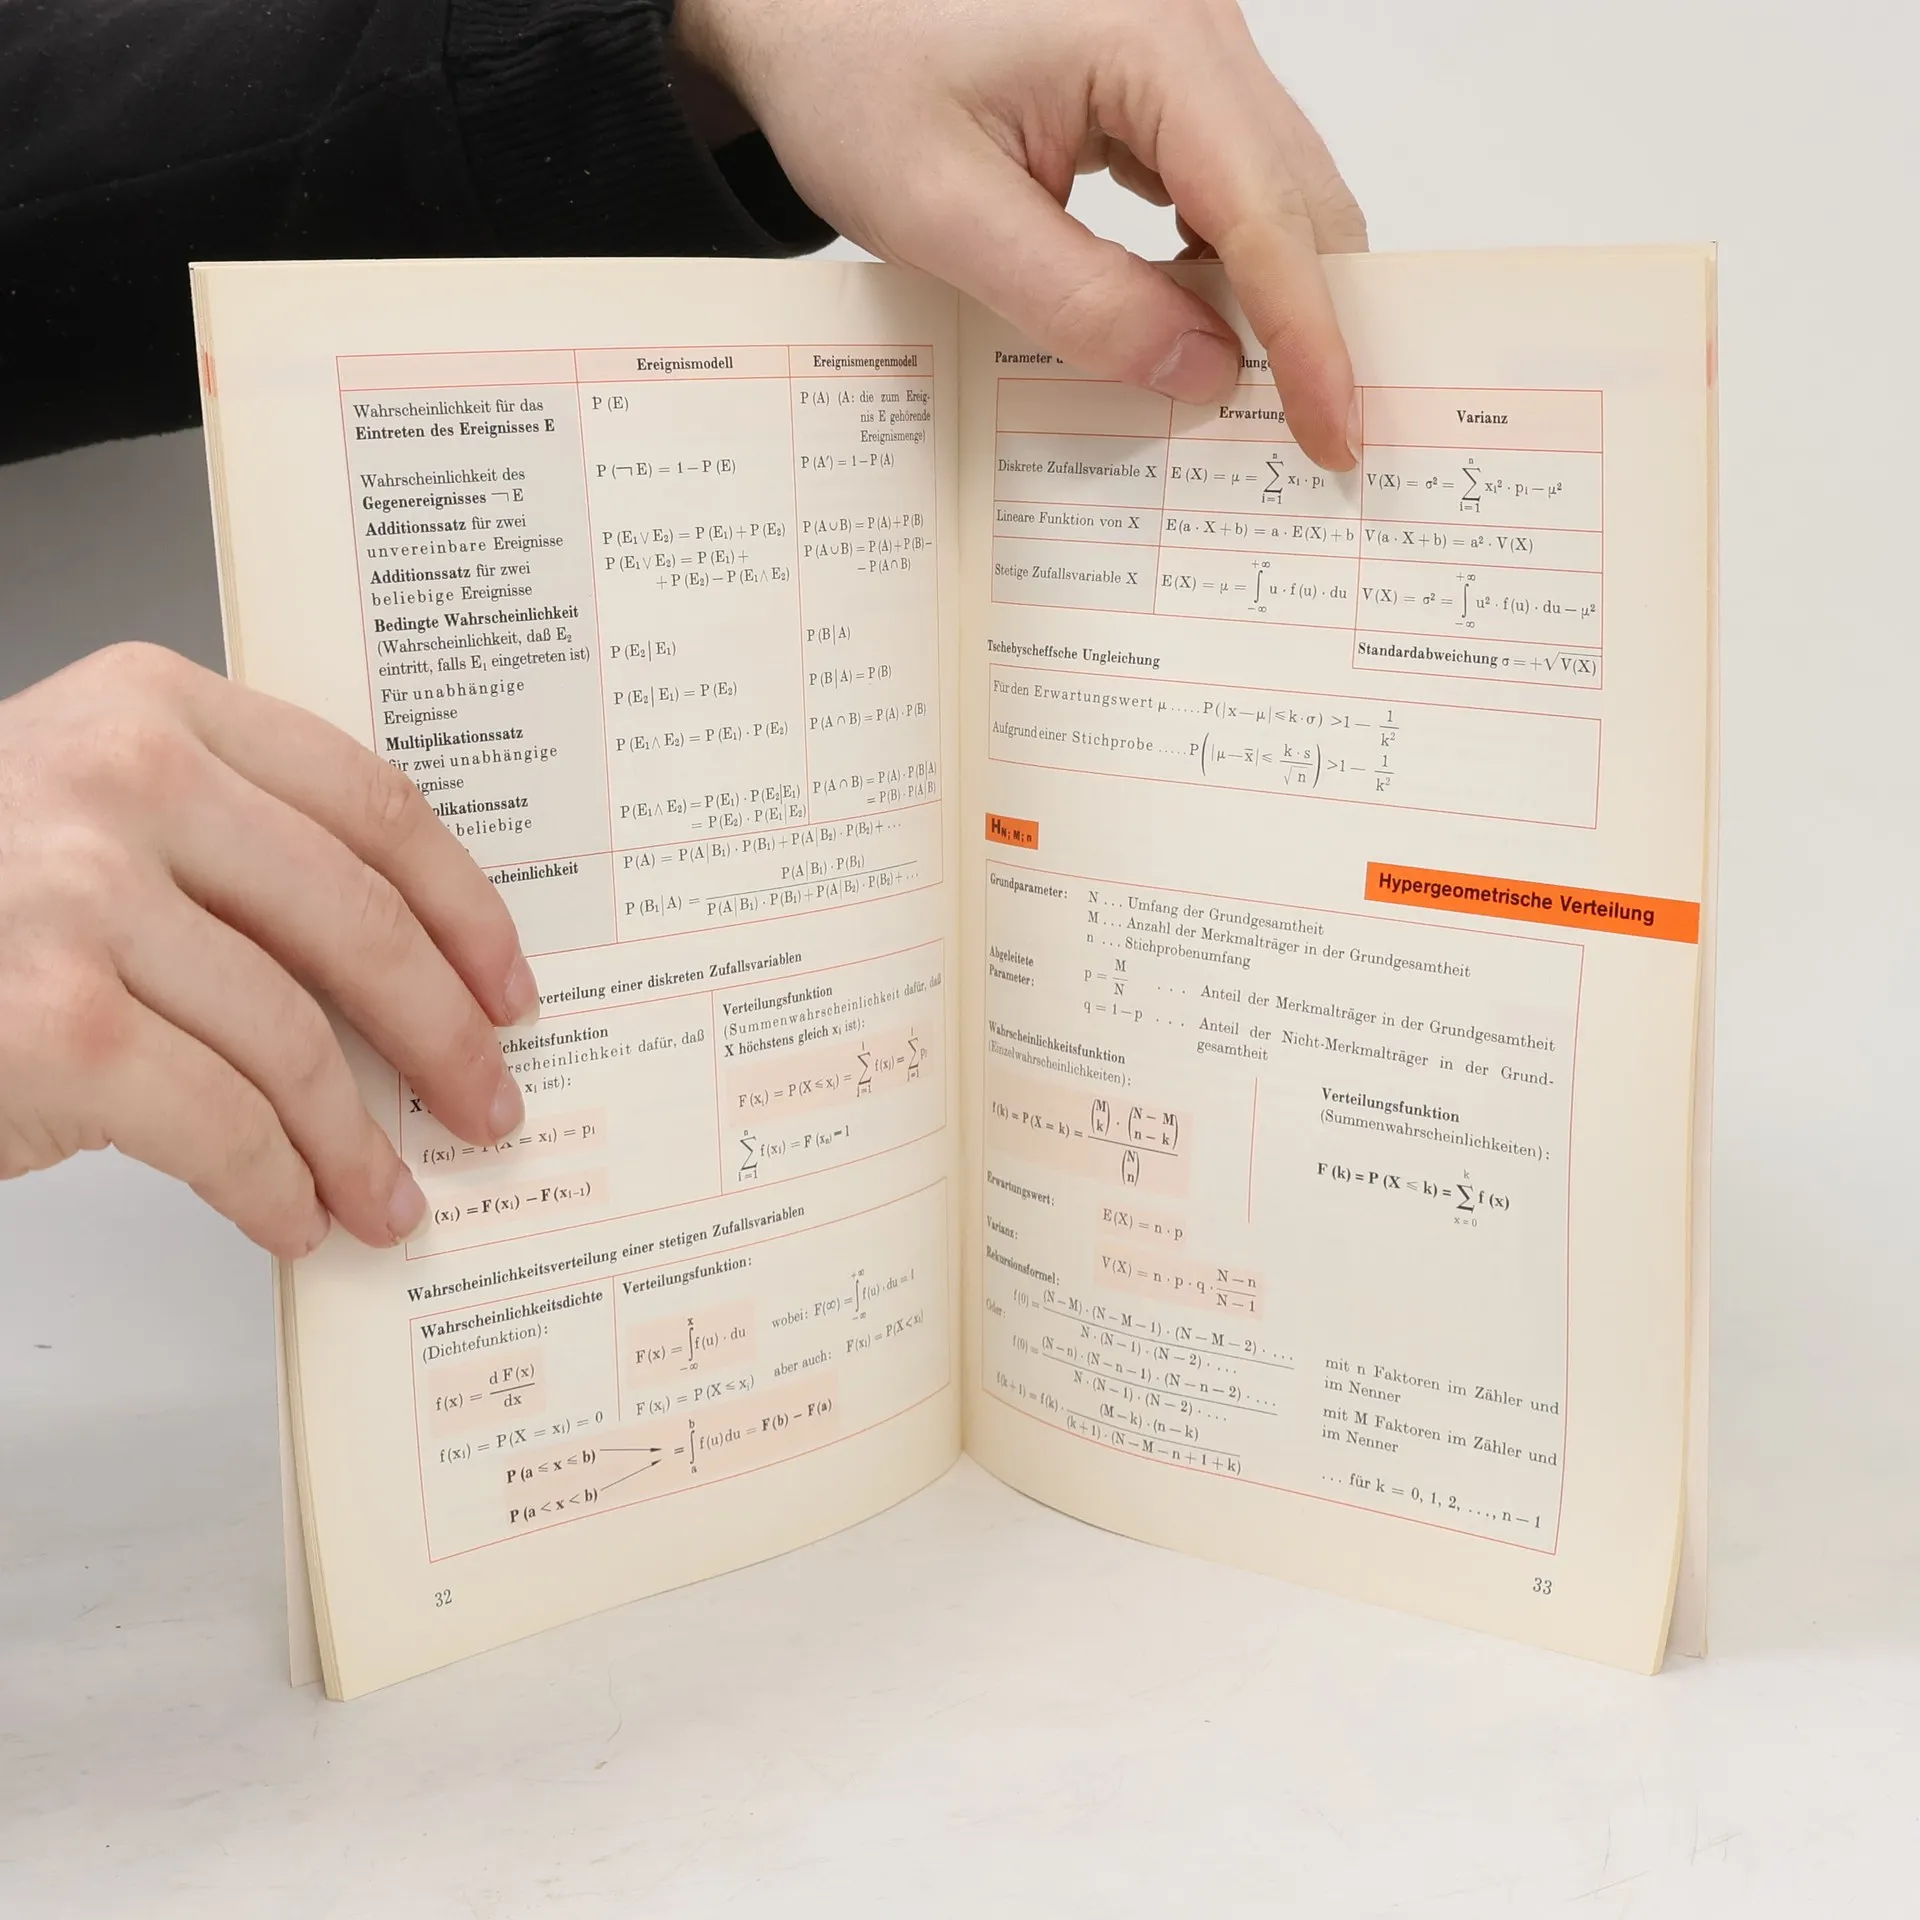 Ereignismodell Ereignismengenmodell
Wahrscheinlichkeit für das P (E) P (A) (A: die zum Ereig-
Eintreten des Ereignisses E nis E gehörende
Ereignismenge)
Wahrscheinlichkeit des P (¬ E) = 1 − P (E) P (A′) = 1 − P (A)
Gegenereignisses ¬ E
Additionssatz für zwei
unvereinbare Ereignisse P (E₁ ∨ E₂) = P (E₁) + P (E₂) P (A ∪ B) = P (A) + P (B)
Additionssatz für zwei P (E₁ ∨ E₂) = P (E₁) + P (A ∪ B) = P (A) + P (B) −
beliebige Ereignisse + P (E₂) − P (E₁ ∧ E₂) − P (A ∩ B)
Bedingte Wahrscheinlichkeit
(Wahrscheinlichkeit, daß E₂
eintritt, falls E₁ eingetreten ist) P (E₂ | E₁) P (B | A)
Für unabhängige P (E₂ | E₁) = P (E₂) P (B | A) = P (B)
Ereignisse
Multiplikationssatz P (E₁ ∧ E₂) = P (E₁) · P (E₂) P (A ∩ B) = P (A) · P (B)
für zwei unabhängige
ignisse
plikationssatz P (E₁ ∧ E₂) = P (E₁) · P (E₂|E₁) P (A ∩ B) = P (A) · P (B|A)
beliebige = P (E₂) · P (E₁|E₂) = P (B) · P (A|B)
scheinlichkeit P (A) = P (A | B₁) · P (B₁) + P (A | B₂) · P (B₂) + ...
P (B₁ | A) = P (A | B₁) · P (B₁) / P (A | B₁) · P (B₁) + P (A | B₂) · P (B₂) + ...
verteilung einer diskreten Zufallsvariablen
chkeitsfunktion
rscheinlichkeit dafür, daß
X xᵢ ist):
f (xᵢ) = P (X = xᵢ) = pᵢ
(xᵢ) = F (xᵢ) − F (xᵢ₋₁)
Verteilungsfunktion
(Summenwahrscheinlichkeit dafür, daß
X höchstens gleich xᵢ ist):
F (xᵢ) = P (X ⩽ xᵢ) = ∑ f (xⱼ) = ∑ pⱼ
n ∑ i=1 f (xᵢ) = F (xₙ) = 1
Wahrscheinlichkeitsverteilung einer stetigen Zufallsvariablen
Wahrscheinlichkeitsdichte
(Dichtefunktion):
f (x) = d F (x) / dx
f (xᵢ) = P (X = xᵢ) = 0
Verteilungsfunktion:
F (x) = x ∫ −∞ f (u) · du wobei: F (∞) = +∞ ∫ −∞ f (u) · du = 1
F (xᵢ) = P (X ⩽ xᵢ) aber auch: F (xᵢ) = P (X < xᵢ)
P (a ⩽ x ⩽ b)
= b ∫ a f (u) du = F (b) − F (a)
P (a < x < b)
32
Parameter lunge
Erwartung Varianz
Diskrete Zufallsvariable X E (X) = μ = n ∑ i=1 xᵢ · pᵢ V (X) = σ² = n ∑ i=1 xᵢ² · pᵢ − μ²
Lineare Funktion von X E (a · X + b) = a · E (X) + b V (a · X + b) = a² · V (X)
Stetige Zufallsvariable X E (X) = μ = +∞ ∫ −∞ u · f (u) · du V (X) = σ² = +∞ ∫ −∞ u² · f (u) · du − μ²
Standardabweichung σ = + √V (X)
Tschebyscheffsche Ungleichung
Für den Erwartungswert μ ..... P (|x − μ| ⩽ k · σ) > 1 − 1 / k²
Aufgrund einer Stichprobe ..... P (|μ − x̄| ⩽ k · s / √n) > 1 − 1 / k²
H N; M; n
Hypergeometrische Verteilung
Grundparameter: N ... Umfang der Grundgesamtheit
M ... Anzahl der Merkmalträger in der Grundgesamtheit
n ... Stichprobenumfang
Abgeleitete
Parameter: p = M / N ... Anteil der Merkmalträger in der Grundgesamtheit
q = 1 − p ... Anteil der Nicht-Merkmalträger in der Grund-
gesamtheit
Wahrscheinlichkeitsfunktion
(Einzelwahrscheinlichkeiten):
f (k) = P (X = k) = (M k) · (N − M n − k) / (N n)
Verteilungsfunktion
(Summenwahrscheinlichkeiten):
F (k) = P (X ⩽ k) = k ∑ x = 0 f (x)
Erwartungswert: E (X) = n · p
Varianz: V (X) = n · p · q · N − n / N − 1
Rekursionsformel: f (0) = (N − M) · (N − M − 1) · (N − M − 2) · .... / N · (N − 1) · (N − 2) · .... mit n Faktoren im Zähler und
im Nenner
Oder: f (0) = (N − n) · (N − n − 1) · (N − n − 2) · .... / N · (N − 1) · (N − 2) · .... mit M Faktoren im Zähler und
im Nenner
f (k + 1) = f (k) · (M − k) · (n − k) / (k + 1) · (N − M − n + 1 + k) ... für k = 0, 1, 2, ..., n − 1
33